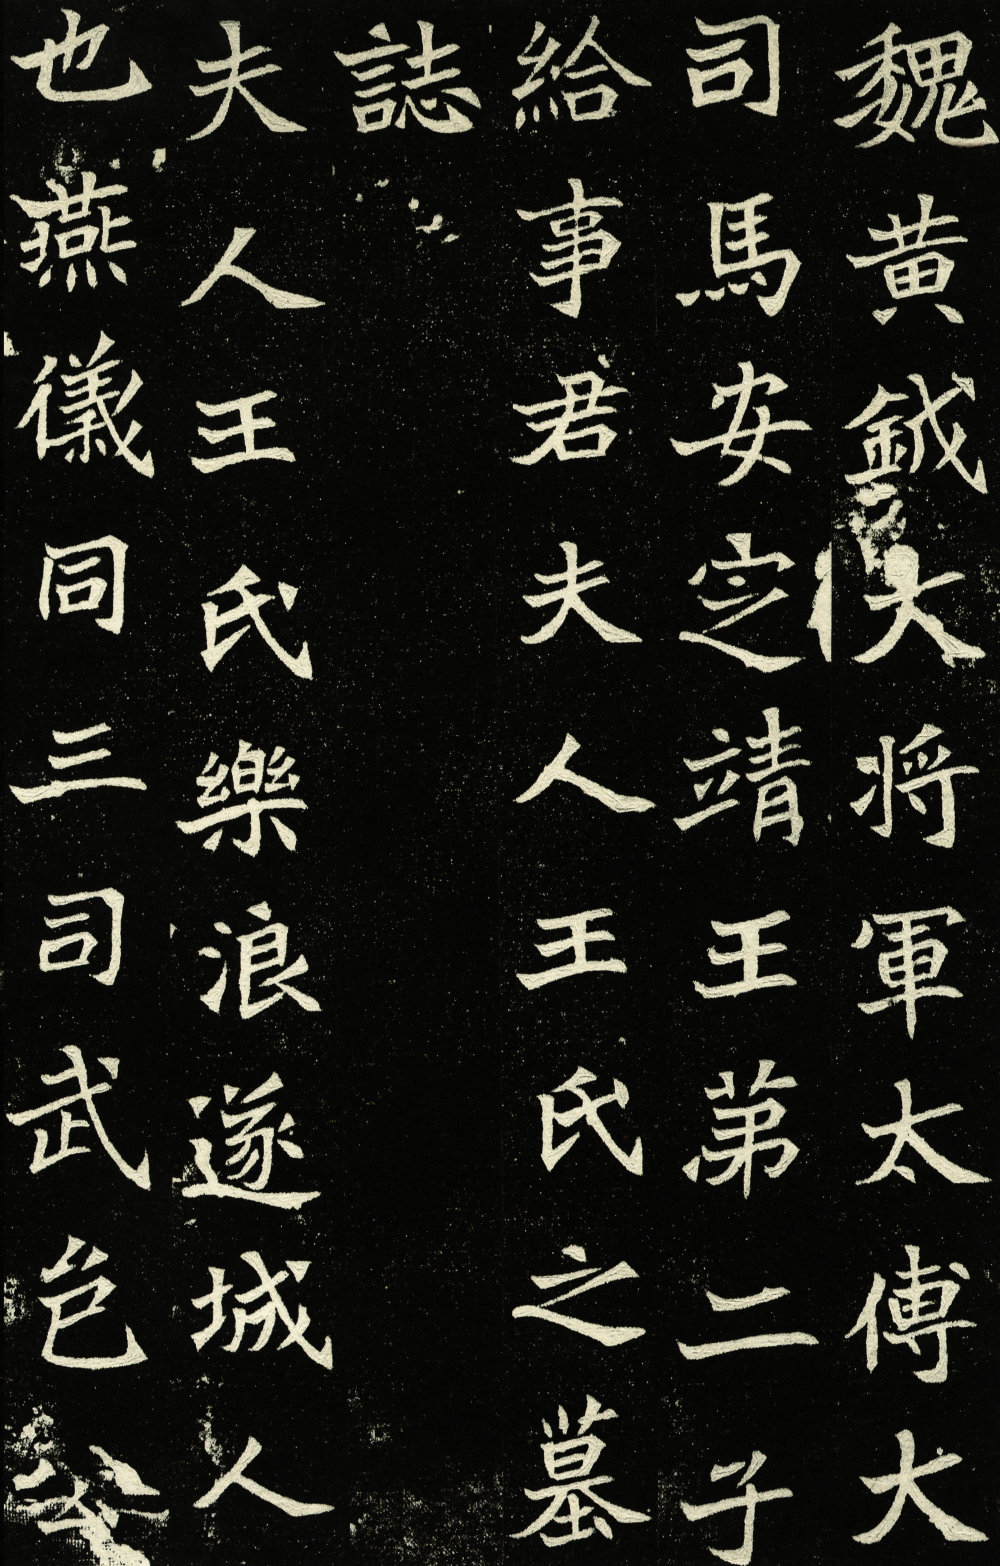 魏黄鉞大将軍太傅大
司馬安定靖王苐二子
給事君夫人王氏之墓
誌
夫人王氏樂浪遂城人
也燕儀同三司武邑公